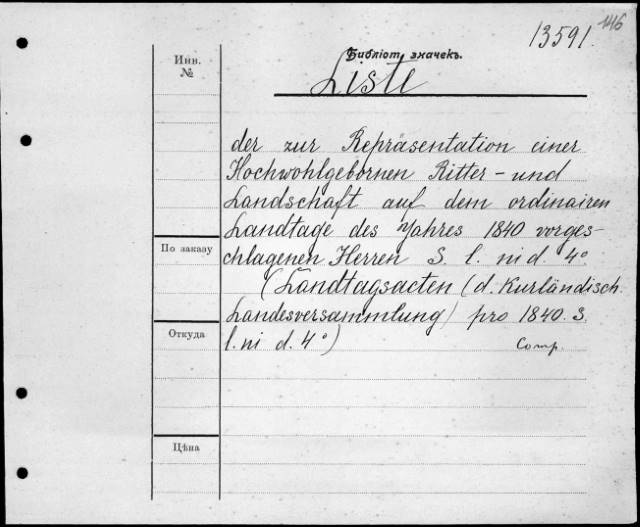 146
13591.
Библіот. значекъ.
Инв.
№
Liste
der zur Repräsentation einer
Hochwohlgebornen Ritter- und
Landschaft auf dem ordinairen
Landtage des Jahres 1840 vorges-
chlagenen Herren S. l. ni d. 4°
По заказу
(Landtagsacten (d. Kurländisch.
Landesversammlung) pro 1840. S.
Откуда
l. ni d. 4°)
Comp.
Цѣна